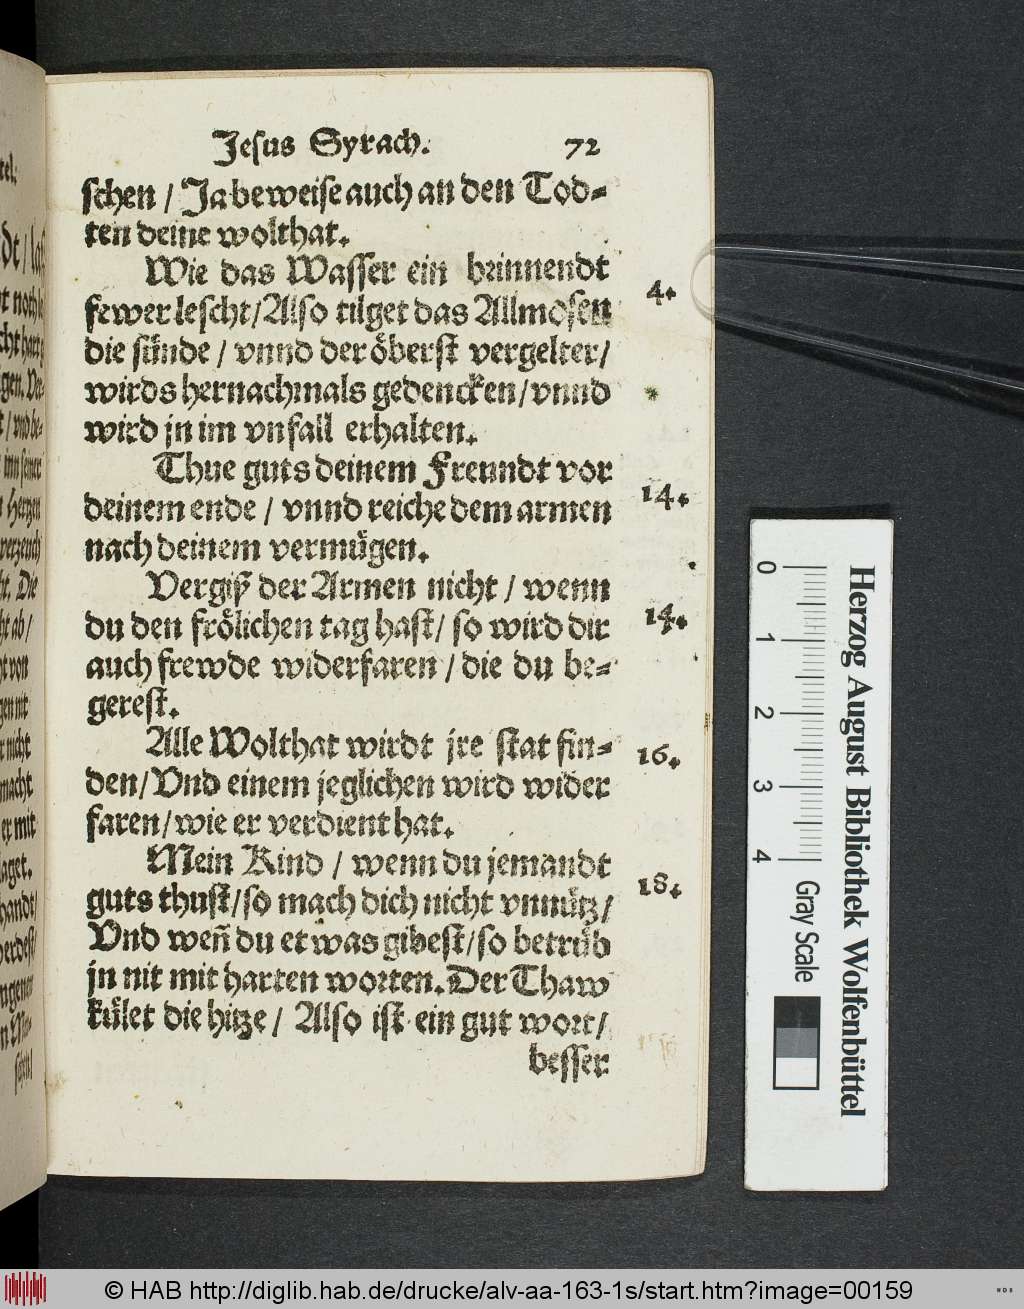 Jesus Syrach. 72
schen / Ja beweise auch an den Tod-
ten deine wolthat.
Wie das Wasser ein brinnendt
fewer lescht / Also tilget das Allmosen
die sünde / vnnd der öberst vergelter /
wirds hernachmals gedencken / vnnd
wird jn im vnfall erhalten.
4.
Thue guts deinem Freundt vor
deinem ende / vnnd reiche dem armen
nach deinem vermügen.
14.
Vergiß der Armen nicht / wenn
du den frölichen tag hast / so wird dir
auch frewde widerfaren / die du be-
gerest.
14.
Alle Wolthat wirdt jre stat fin-
den / Vnd einem jeglichen wird wider
faren / wie er verdient hat.
16.
Mein Kind / wenn du jemandt
guts thust / so mach dich nicht vnnütz /
Vnd weñ du etwas gibest / so betrüb
jn nit mit harten worten. Der Thaw
kület die hitze / Also ist ein gut wort /
18.
besser
0 1 2 3 4
Gray Scale
Herzog August Bibliothek Wolfenbüttel
© HAB http://diglib.hab.de/drucke/alv-aa-163-1s/start.htm?image=00159